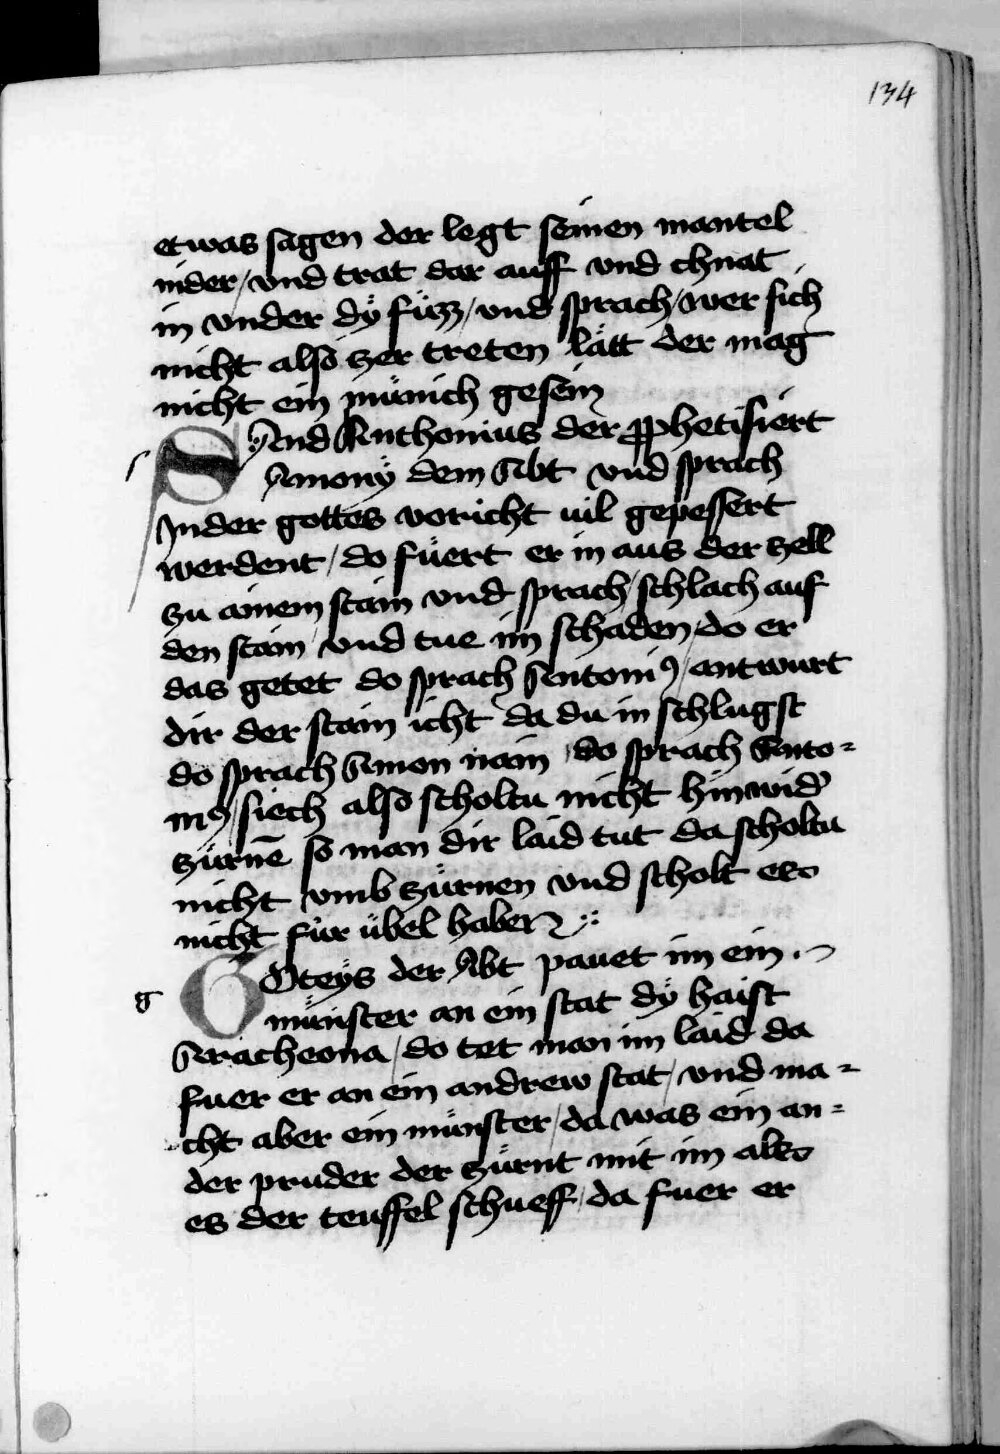 134
etwas sagen der legt seinen mantel
nider / vnd trat dar auff vnd chnat
in vnder dÿ füzz / vnd sprach / wer sich
nicht also zer treten lätt der mag
nicht ein münich gesein
s SAnd Anthonius der prophetisiert
Amonÿ dem Abt vnd sprach
In der gottes voricht wil gepessert
werdent / do füert er in aus der zell
zu ainem stain vnd sprach / schlach auf
den stain / vnd tue im schaden / do er
das getet do sprach Antoniꝰ / antwurt
dir der stain icht da du in schlugst
do sprach Amon nain / do sprach Anto=
niꝰ / siech also scholtu nicht hinwid'
zürnē so man dir laid tut da scholtu
nicht vmb zürnen vnd scholt es
nicht für übel haben
g GOteÿs der Abt pauet im ein
münster an ein stat dÿ haist
Aracheona / do tet man im laid da
fuer er an ein andrew stat / vnd ma=
cht aber ein münster / da was ein an=
der pruder der zürnt mit im als
es der teuffel schueff / da fuer er